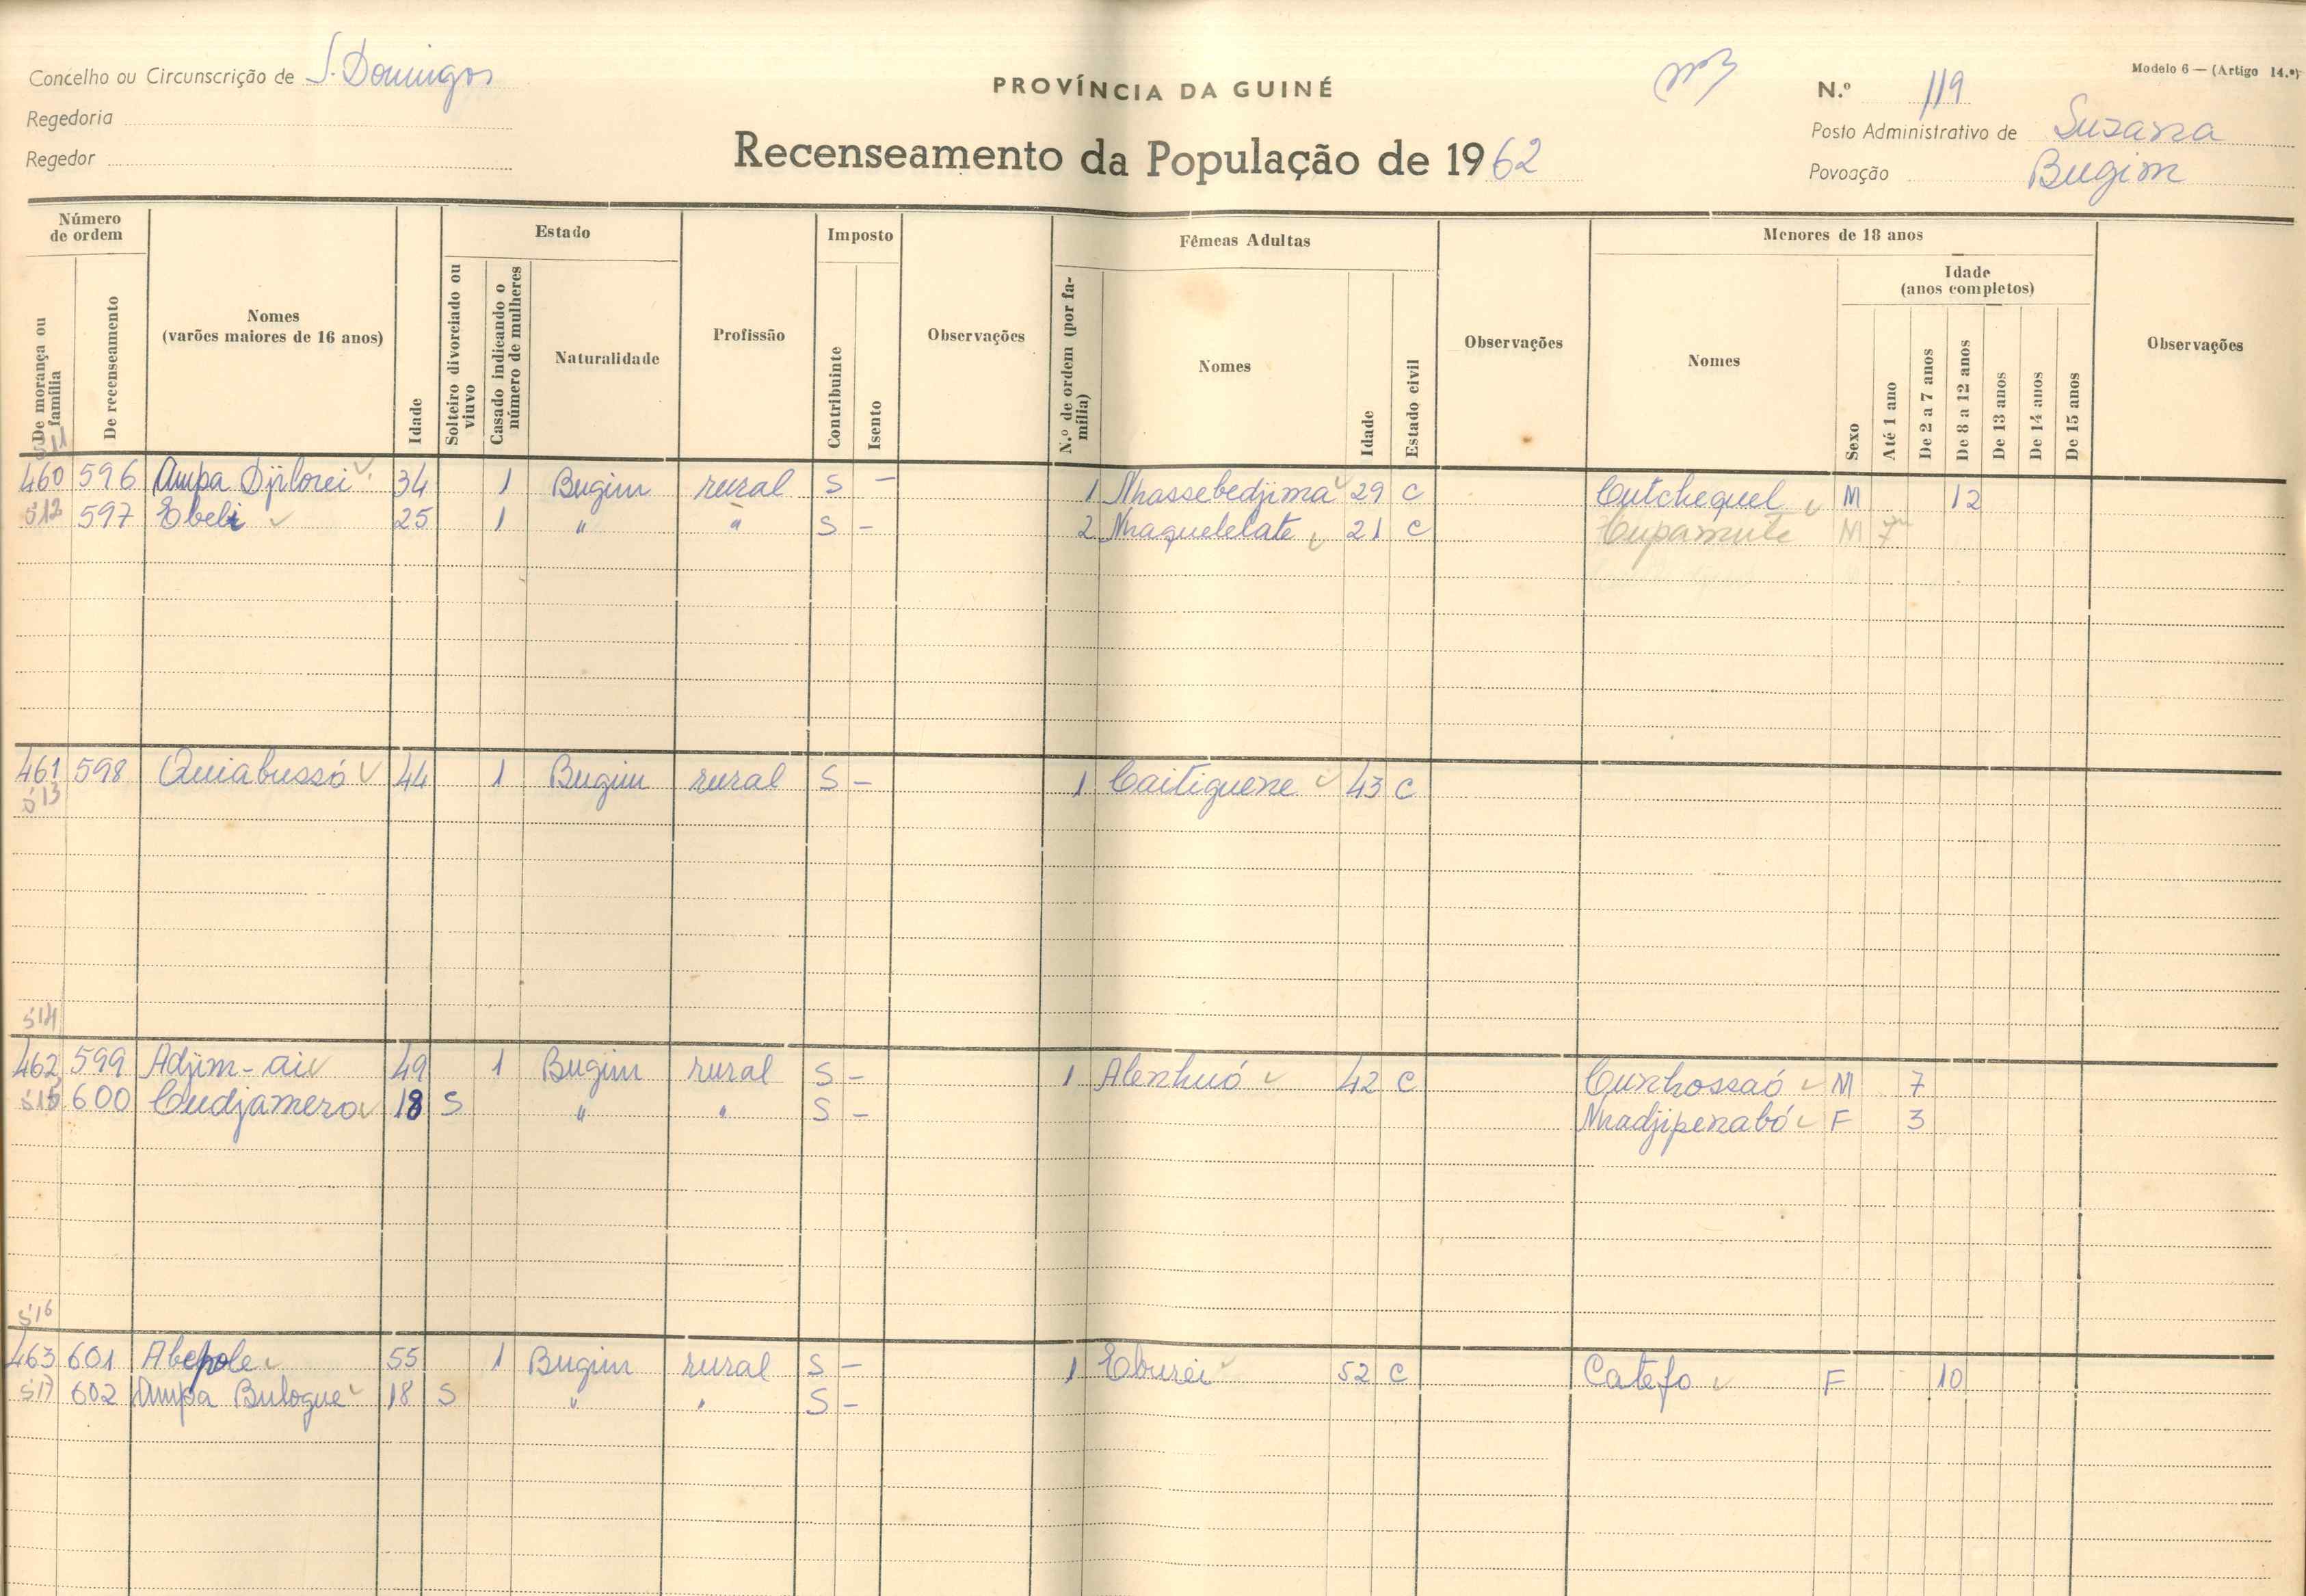 Modelo 6 — (Artigo 14.º)
Concelho ou Circunscrição de S. Domingos
PROVÍNCIA DA GUINÉ
N.º 119
Regedoria
Posto Administrativo de Suzana
Regedor
Recenseamento da População de 1962
Povoação Bugim
Número de ordem
De morança ou família
De recenseamento
Nomes (varões maiores de 16 anos)
Idade
Estado
Solteiro divorciado ou viuvo
Casado indicando o número de mulheres
Naturalidade
Profissão
Imposto
Contribuinte
Isento
Observações
Fêmeas Adultas
N.º de ordem (por família)
Nomes
Idade
Estado civil
Observações
Menores de 18 anos
Nomes
Sexo
Idade (anos completos)
Até 1 ano
De 2 a 7 anos
De 8 a 12 anos
De 13 anos
De 14 anos
De 15 anos
Observações
511
460 596 Ampa Djilorei 34 1 Bugim rural S — 1 Nhassebedjima 29 C Cutchequel M 12
512 597 Ebeli 25 1 " " S — 2 Nhaquelelate 21 C Cupamute M
461 598 Quiabussó 44 1 Bugim rural S — 1 Caitiguene 43 C
513
514
462 599 Adjim-ai 49 1 Bugim rural S — 1 Alenhuó 42 C Cunhossaó M 7
515 600 Cudjamero 18 S " " S — Nhadjipenabó F 3
516
463 601 Abepole 55 1 Bugim rural S — 1 Eburei 52 C Catefo F 10
517 602 Ampa Bulogue 18 S " " S —